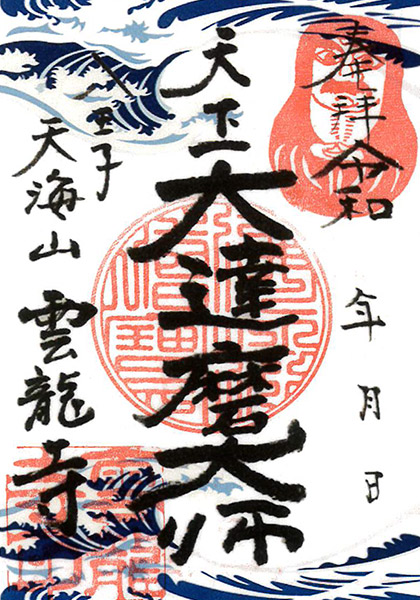 奉拝 令和 年 月 日
天下一大達磨大師
八王子
天海山 雲龍寺